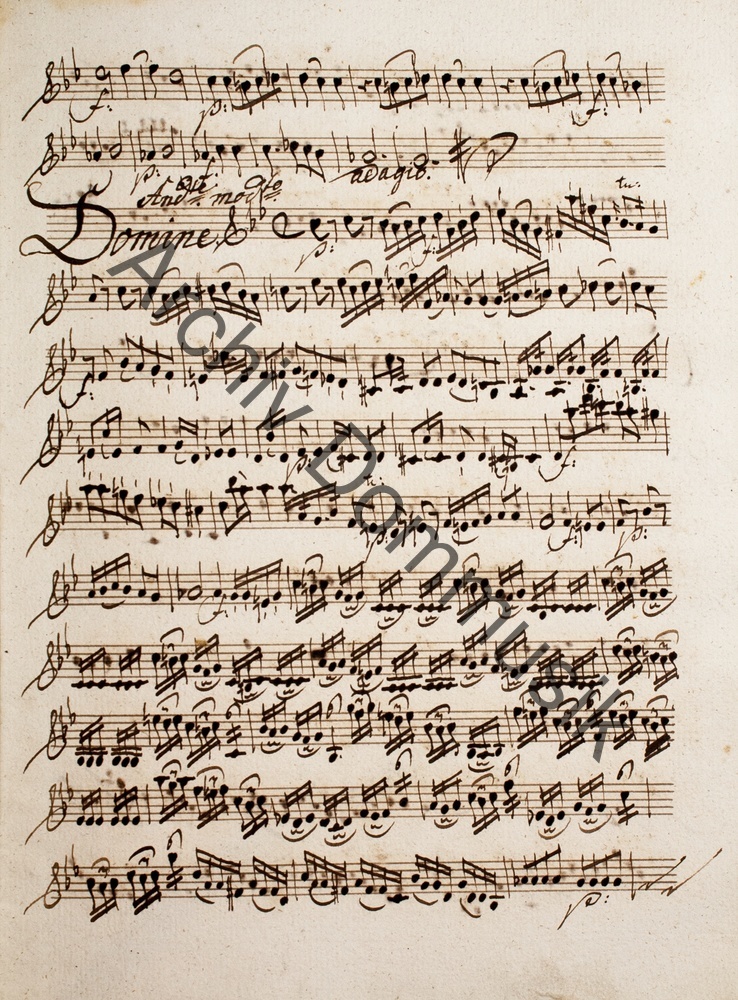 f: p: f:
p: adagio.
And.te mod.to
Domine. p: f: tu:
f:
p: f:
p: f: p:
f:
p:
Archiv Dommusik